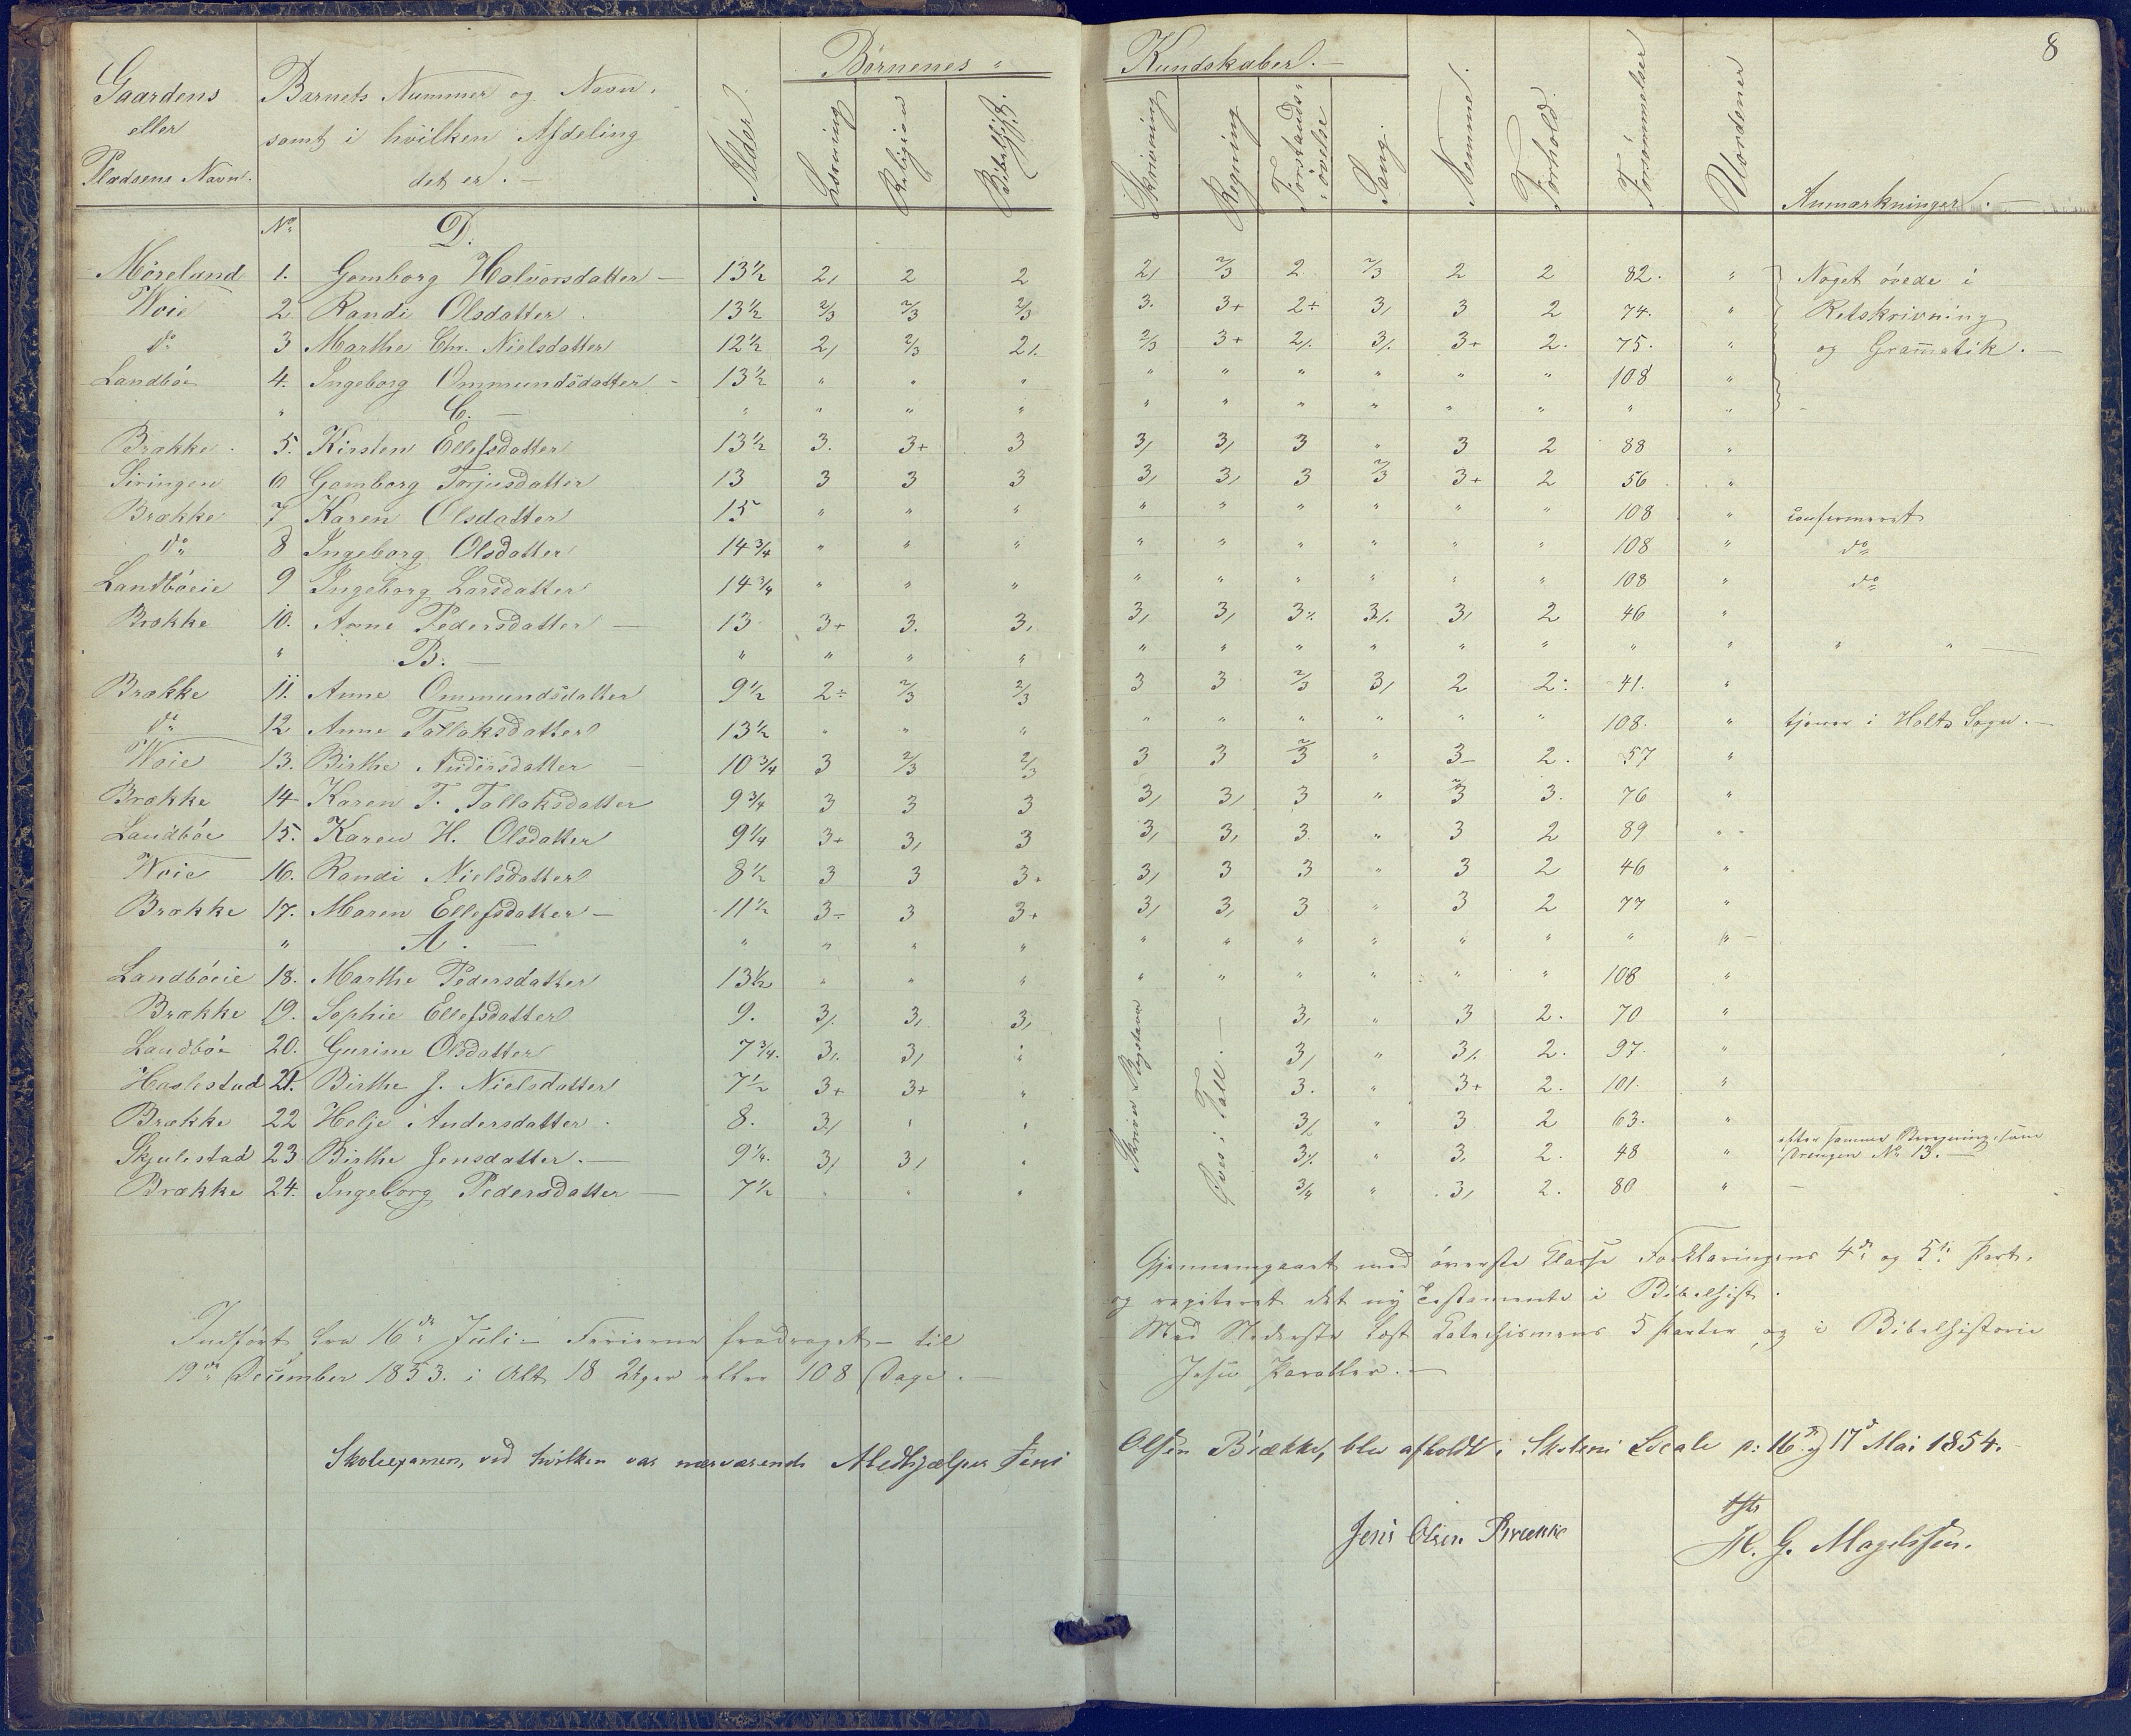 8
Børnenes " Kundskaber. —
Gaardens eller Pladsens Navn. | Barnets Nummer og Navn, samt i hvilken Afdeling det er. — | Alder | Læsning | Religion | Bibelhist. | Skrivning | Regning | Forstands-øvelse | Sang. | Nemme. | Forhold. | Forsømmelser | Uordener | Anmærkninger. —
No. D.
Møreland 1. Gomborg Halvorsdatter — 13½ 2, 2 2 2, 2/3 2 2/3 2 2 82. " Noget øvede i
Woie 2 Randi Olsdatter 13½ 2/3 2/3 2/3 3. 3+ 2÷ 3, 3 2 74. " Retskrivning
do 3 Marthe Chr. Nielsdatter 12½ 2, 2/3 2/. 2/3 3+ 2/. 3/. 3+ 2. 75. " og Gramatik. —
Landbøe 4. Ingeborg Ommundsdatter - 13½ " " " " " " " " " 108 "
" C. — " " " " " " " " " " " " "
Brække. 5. Kirsten Ellefsdatter 13½ 3. 3+ 3 3, 3, 3 " 3 2 88 "
Siringen 6 Gomborg Torjusdatter 13 3 3 3 3, 3, 3 2/3 3+ 2 56 "
Brække 7 Karen Olsdatter 15 " " " " " " " " " 108 " confirmeret
do 8 Ingeborg Olsdatter 14¾ " " " " " " " " " 108 " do
Landbøeie 9 Ingeborg Larsdatter 14¾ " " " " " " " " " 108 " do
Brække 10. Anne Pedersdatter — 13 3+ 3. 3, 3, 3, 3/. 3/. 3, 2 46 "
" B. — " " " " " " " " " " " " " "
Brække 11. Anne Ommundsdatter 9½ 2÷ 2/3 2/3 3 3 2/3 3, 2 2: 41. "
do 12 Anne Tallaksdatter 13½ " " " " " " " " " 108. " tjener i Holts Sogn. —
Woie 13. Birthe Andersdatter 10¾ 3 2/3 2/3 3 3 2/3 " 3- 2. 57 "
Brække 14 Karen T. Tallaksdatter 9¾ 3 3 3 3, 3, 3 " 2/3 3. 76 "
Landbøe 15. Karen H. Olsdatter 9¼ 3+ 3, 3 3, 3, 3. " 3 2 89 "
Woie 16. Randi Nielsdatter 8½ 3 3 3+ 3, 3 3 " 3 2 46 "
Brække 17. Maren Ellefsdatter — 11½ 3- 3 3+ 3, 3, 3 " 3 2 77 "
" A. — " " " " " " " " " " " " —
Landbøeie 18. Marthe Pedersdatter 13½ " " " " " " " " " 108 "
Brække 19. Sophie Ellefsdatter 9. 3/. 3, 3, 3, " 3 2. 70 "
Landbøe 20. Gurine Olsdatter 7¾. 3/. 3, " 3, " 3/. 2. 97. "
Haslestad 21. Birthe J. Nielsdatter 7½ 3+ 3+ " 3. " 3+ 2. 101. "
Brække 22 Helje Andersdatter. 8. 3, " " 3/. " 3 2 63. "
Skjulestad 23 Birthe Jensdatter. — 9¼. 3, 3, " 3/. " 3, 2. 48 " efter samme Beregning som Drengen No 13. —
Brække 24. Ingeborg Pedersdatter — 7½ " " " 3/4 " 3, 2. 80 " —
Skriver Bogstaver
Øves i Tall. —
Indført fra 16de Juli — Ferierne fradraget — til
19de December 1853. i Alt 18 Uger eller 108 Dage. —
Gjennemgaaet med øverste Classe Forklaringens 4de og 5te Part,
og repiteret det ny Testamente i Bibelhist.
Med Nederste læst Catechismens 5 Parter, og i Bibelhistorie
Jesu Parabler. —
Skoleexamen, ved hvilken var nærværende Medhjælper Jens Olsen Brække, blev afholdt i Skolens Locale p: 16de og 17de Mai 1854.
Jens Olsen Brække
H. G. Magelssen.